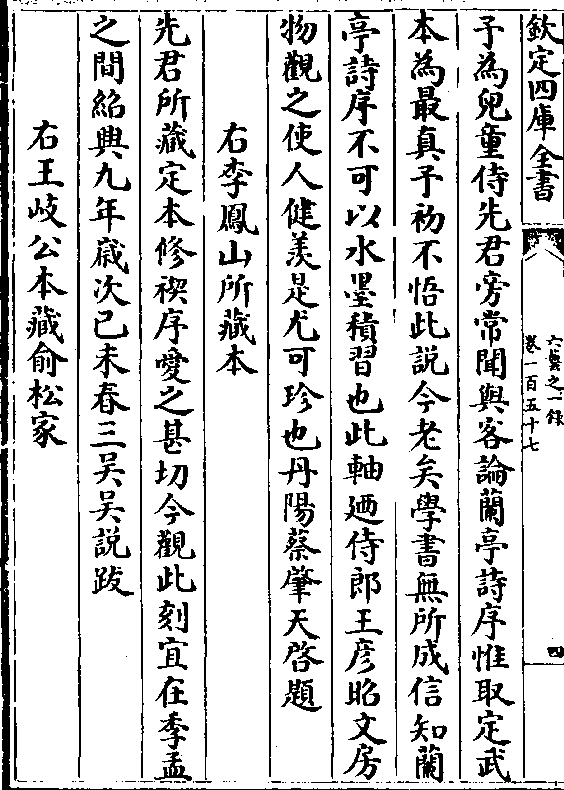 欽定四庫全書
六藝之一錄
卷一百五十七
四
予為兒童侍先君旁常聞與客論蘭亭詩序惟取定武
本為最真予初不悟此説今老矣學書無所成信知蘭
亭詩序不可以水墨積習也此軸廼侍郎王彥昭文房
物觀之使人健羨是尤可珍也丹陽蔡肇天啓題
右李鳳山所藏本
先君所藏定本修禊序愛之甚切今觀此刻宜在季孟
之間紹興九年歲次己未春三吳吳説跋
右王岐公本藏俞松家